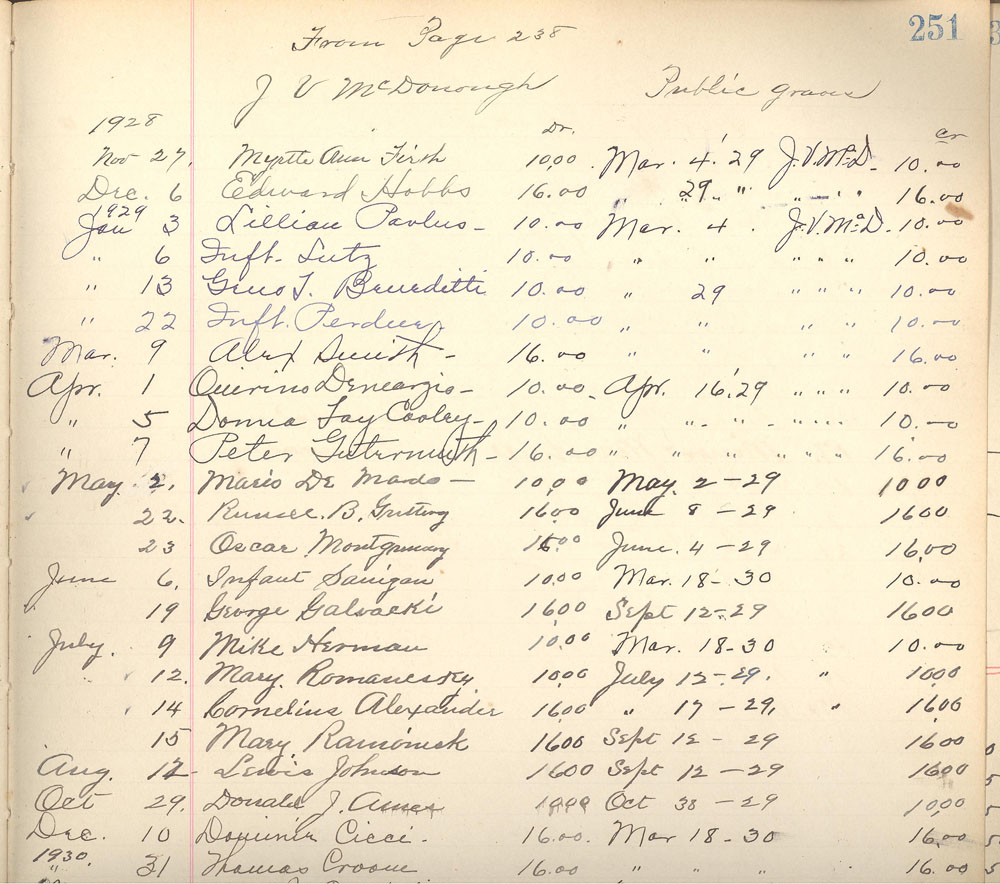 251
From Page 238
J V McDonough Public graves
1928 Dr. cr
Nov 27. Myrtle Ann Firth 10.00. Mar. 4.'29 J.V.McD. 10.00
Dec. 6 Edward Hobbs 16.00 " 29 " " " " 16.00
1929
Jan 3 Lillian Pavlus - 10.00 Mar. 4. J.V.McD. 10.00
" 6 Inft. Lutz 10.00 " " " " " 10.00
" 13 Geno T. Benedetti 10.00 " 29 " " " 10.00
" 22 Inft. Perdue 10.00 " " " " 10.00
Mar. 9 Alex Smith - 16.00 " " " " 16.00
Apr. 1 Quirino - 10.00 Apr. 16.'29 " " " 10.00
" 5 Donna Fay Cooley - 10.00 " " " " " " 10.00
" 7 Peter Gutermuth - 16.00 " " " " " " " 16.00
May. 2. Mario De - 10.00 May. 2 - 29 10.00
22. B. 16.00 June 8 - 29 16.00
23 Oscar Montgomery 16.00 June. 4 - 29 16.00
June 6. Infant 10.00 Mar. 18 - 30 10.00
19 George 16.00 Sept 12 - 29 16.00
July. 9 Mike Herman 10.00 Mar. 18-30 10.00
12. Mary. Romanesky 10.00 July 12 - 29. " 10.00
14 Cornelius Alexander 16.00 " 17 - 29, " 16.00
15 Mary 16.00 Sept 12 - 29 16.00
Aug. 12 - Lewis Johnson 16.00 Sept 12 - 29 16.00
Oct 29. Donald J. Ames 10.00 Oct 30 - 29 10.00
Dec. 10 Cicci. 16.00. Mar 18 - 30 16.00
1930.
" 31 Thomas Croom 16.00 " " " 16.00